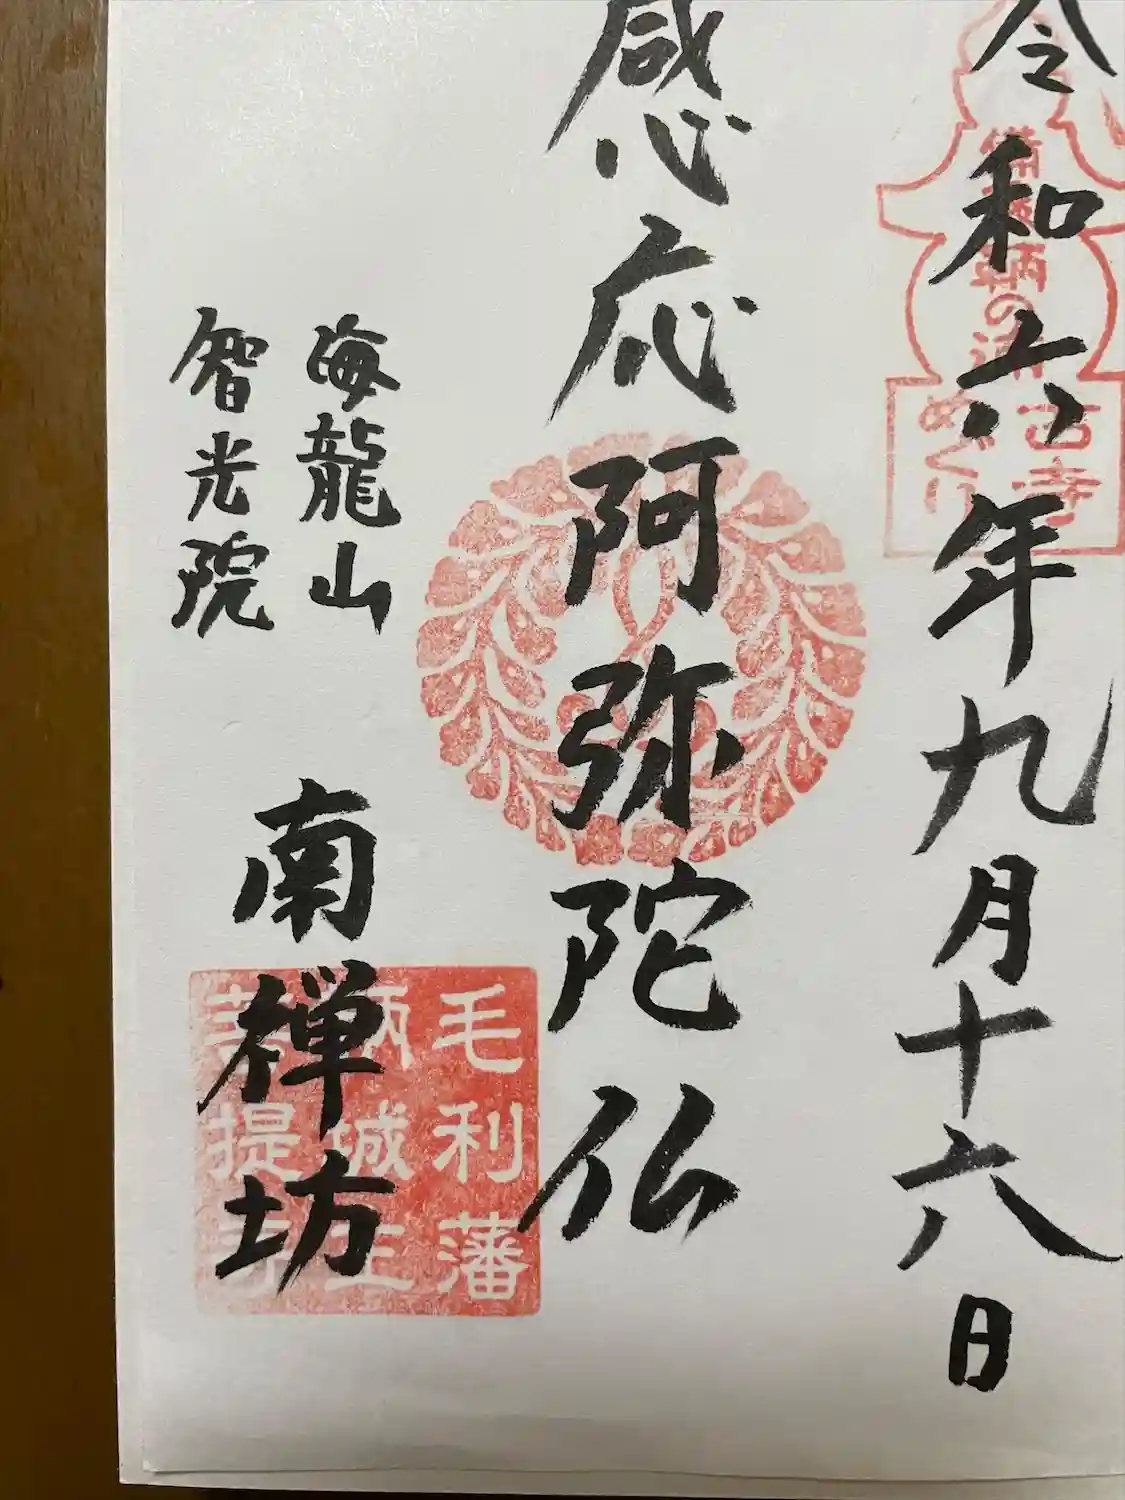 令和六年九月十六日
備後鞆の浦
古寺
めぐり
感応阿弥陀仏
海龍山
智光院
南禅坊
毛利藩
鞆城主
菩提寺